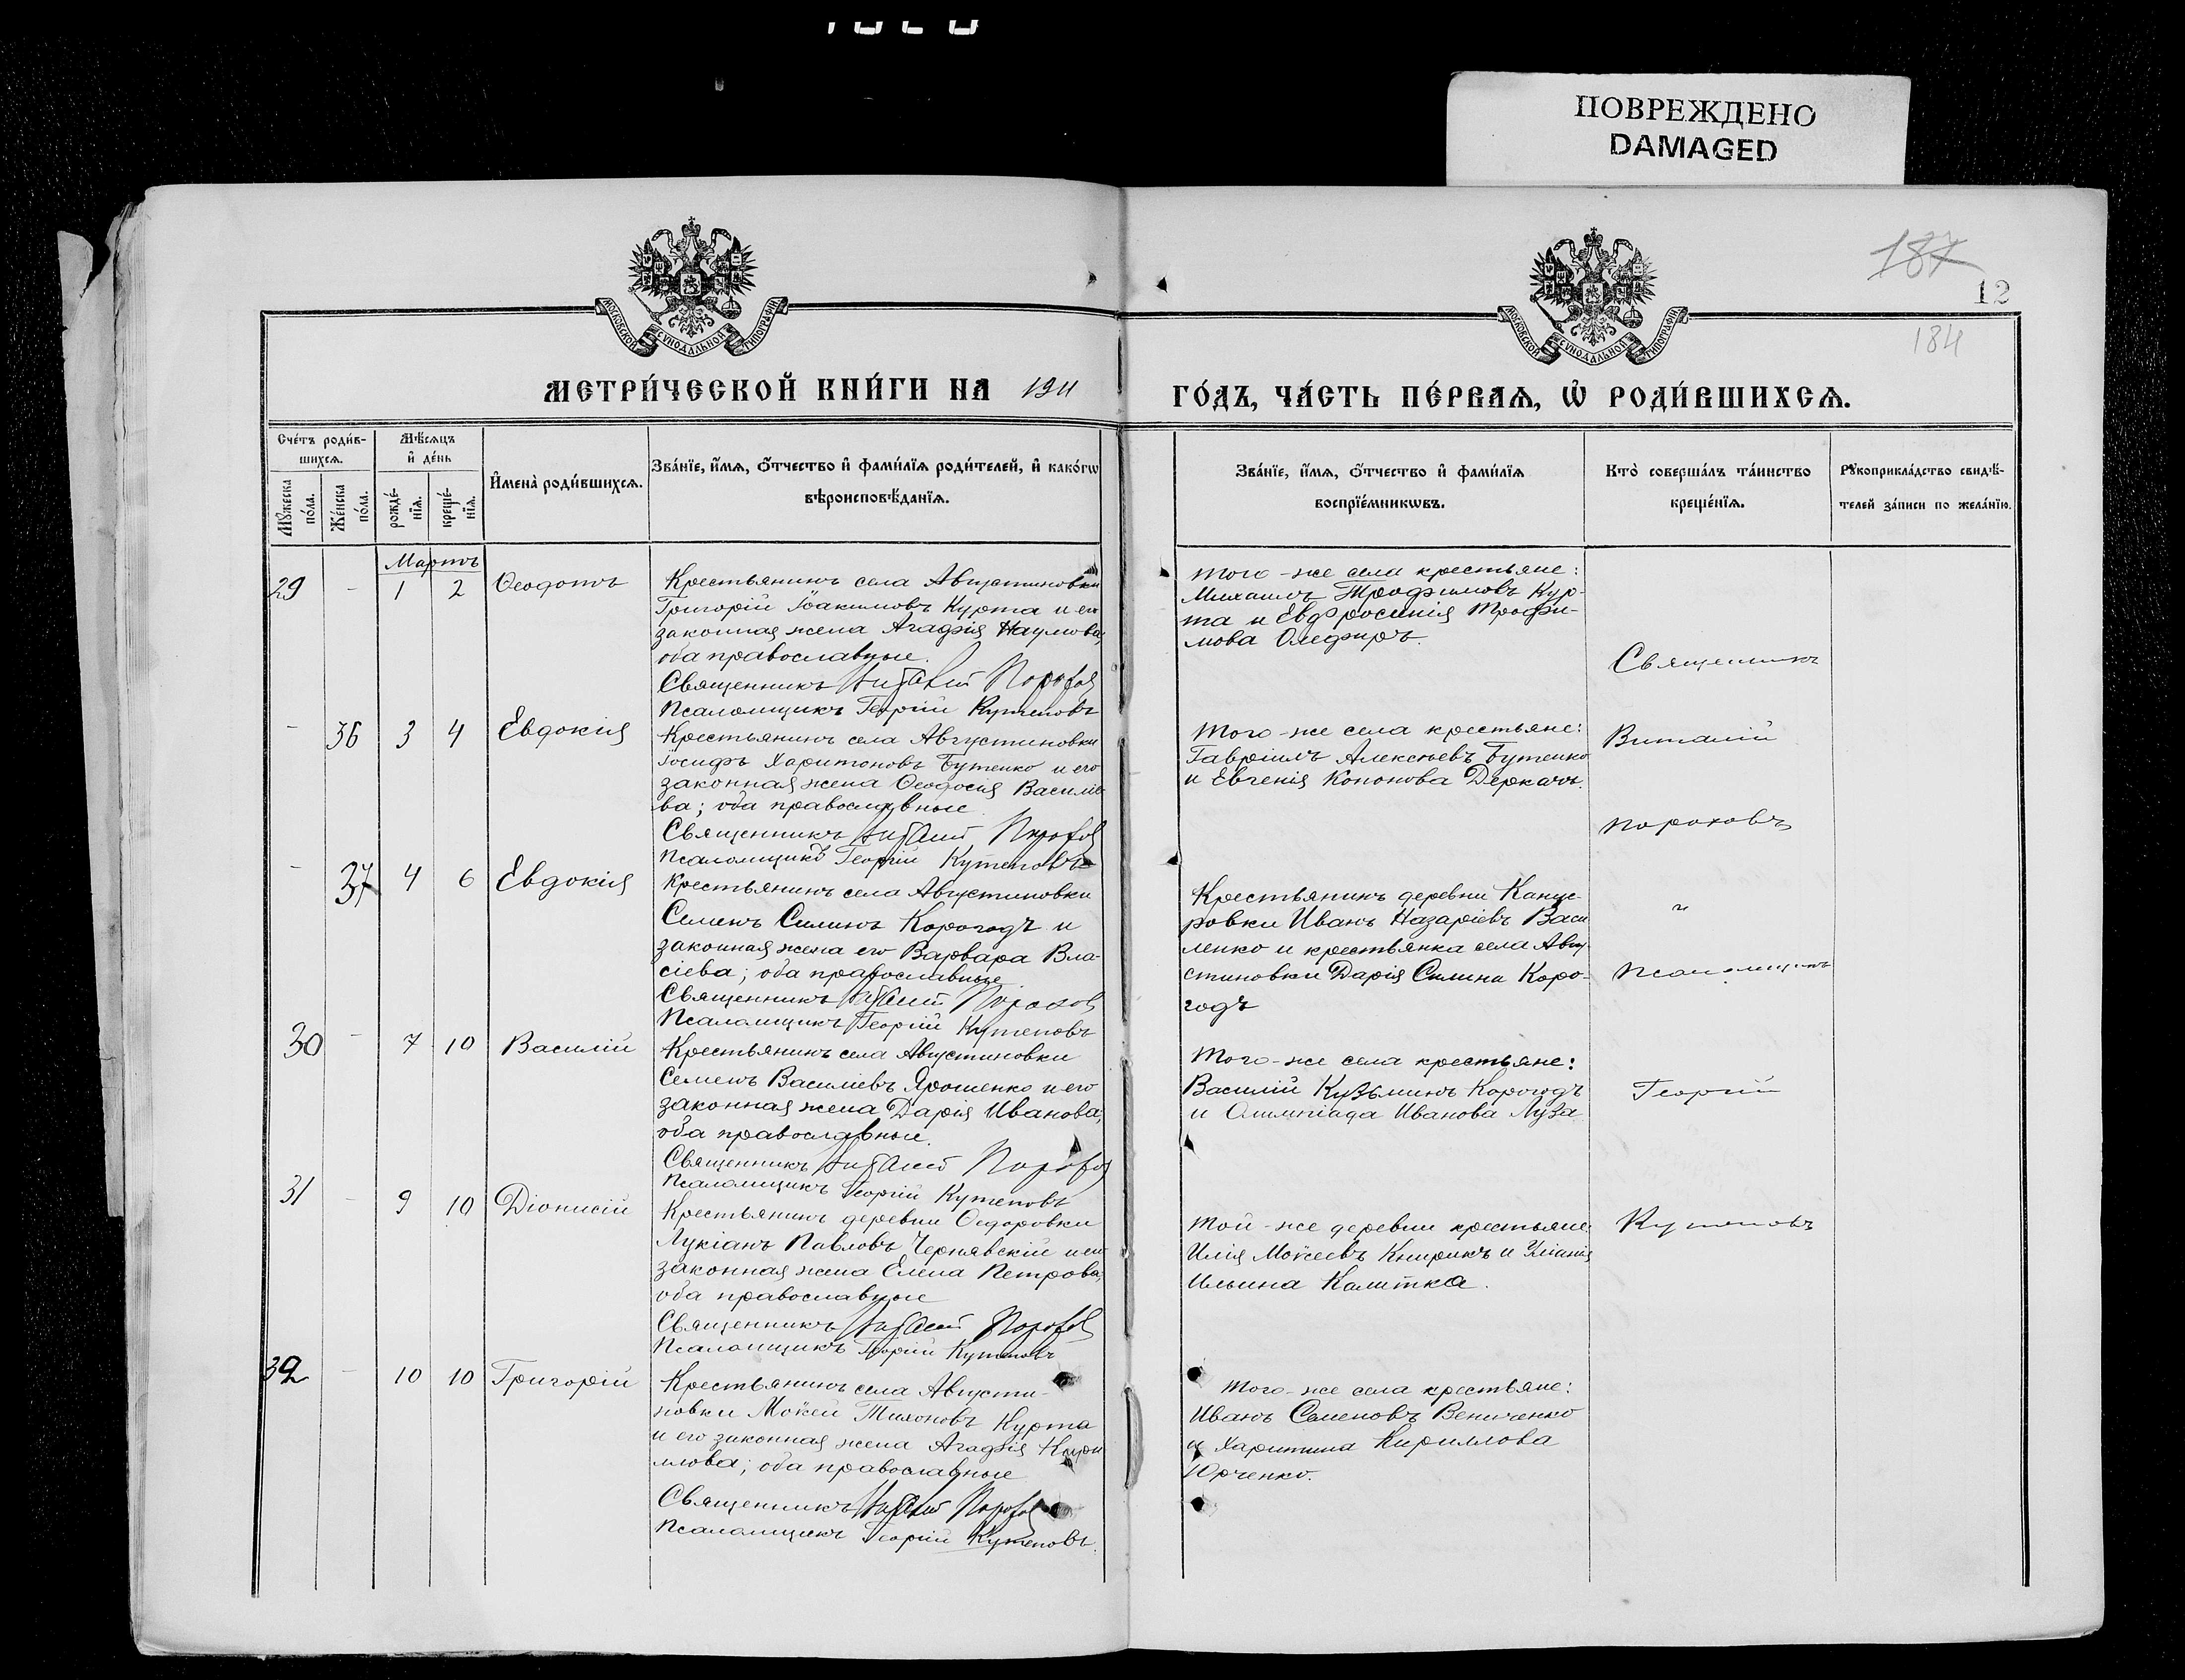 ПОВРЕЖДЕНО
DAMAGED
187
12
184
МОСКОВСКОЙ СѴНОДАЛЬНОЙ ТИПОГРАФІИ
МОСКОВСКОЙ СѴНОДАЛЬНОЙ ТИПОГРАФІИ
МЕТРИ́ЧЕСКОЙ КНИ́ГИ НА 1911
ГО́ДЪ, ЧА́СТЬ ПЕ́РВАѦ, Ѽ РОДИ́ВШИХСѦ.
Сче́тъ роди́в-
шихсѧ.
Мꙋ́жеска
по́ла.
Же́нска
по́ла.
Мѣ́сѧцъ
и҆ де́нь
рожде́-
нїѧ.
креще́-
нїѧ.
И҆мена̀ роди́вшихсѧ.
Зва́нїе, и҆́мѧ, ѻ҆́тчество и҆ фами́лїѧ роди́телей, и҆ како́гѡ
вѣроисповѣ́данїѧ.
Зва́нїе, и҆́мѧ, ѻ҆́тчество и҆ фами́лїѧ
воспрїе́мникѡвъ.
Кто̀ соверша́лъ та́инство
креще́нїѧ.
Рꙋкоприкла́дство свидѣ́-
телей за́писи по жела́нїю.
Мартъ
29 - 1 2 Ѳеодотъ
Крестьянинъ села Августиновки
Григорій Іоакимовъ Курта и его
законная жена Агафія Наумова,
оба православные.
Священникъ Виталій Пороховъ
Псаломщикъ Георгій Кутеповъ
Того-же села крестьяне:
Михаилъ Трофимовъ Кур-
та и Евфросинія Трофи-
мова Олефиръ.
- 36 3 4 Евдокія
Крестьянинъ села Августиновки
Іосифъ Харитоновъ Бутенко и его
законная жена Ѳеодосія Василіе-
ва; оба православные
Священникъ Виталій Пороховъ
Псаломщикъ Георгій Кутеповъ
Того-же села крестьяне:
Гавріилъ Алексѣевъ Бутенко
и Евгенія Кононова Деркачъ.
- 37 4 6 Евдокія
Крестьянинъ села Августиновки
Семенъ Силинъ Корогодъ и
законная жена его Варвара Вла-
сіева; оба православные
Священникъ Виталій Пороховъ
Псаломщикъ Георгій Кутеповъ
Крестьянинъ деревни Канце-
ровки Иванъ Назаріевъ Васи
ленко и крестьянка села Авгу-
стиновки Дарія Силина Коро-
годъ
30 - 7 10 Василій
Крестьянинъ села Августиновки
Семенъ Василіевъ Ярошенко и его
законная жена Дарія Иванова;
оба православные.
Священникъ Виталій Пороховъ
Псаломщикъ Георгій Кутеповъ
Того-же села крестьяне:
Василій Кузьминъ Корогодъ
и Олимпіада Иванова Луза
31 - 9 10 Діонисій
Крестьянинъ деревни Ѳедоровки
Лукіанъ Павловъ Чернявскій и его
законная жена Елена Петрова;
оба православные
Священникъ Виталій Пороховъ
Псаломщикъ Георгій Кутеповъ
Той-же деревни крестьяне:
Илія Моѵсеевъ Кнырикъ и Уліанія
Ильина Калитка.
32 - 10 10 Григорій
Крестьянинъ села Августи-
новки Мокей Тихоновъ Курта
и его законная жена Агафія Кири
ллова; оба православные
Священникъ Виталій Пороховъ
Псаломщикъ Георгій Кутеповъ.
Того-же села крестьяне:
Иванъ Семеновъ Величенко
и Харитина Кириллова
Юрченко.
Священникъ
Виталій
Пороховъ
и
Псаломщикъ
Георгій
Кутеповъ